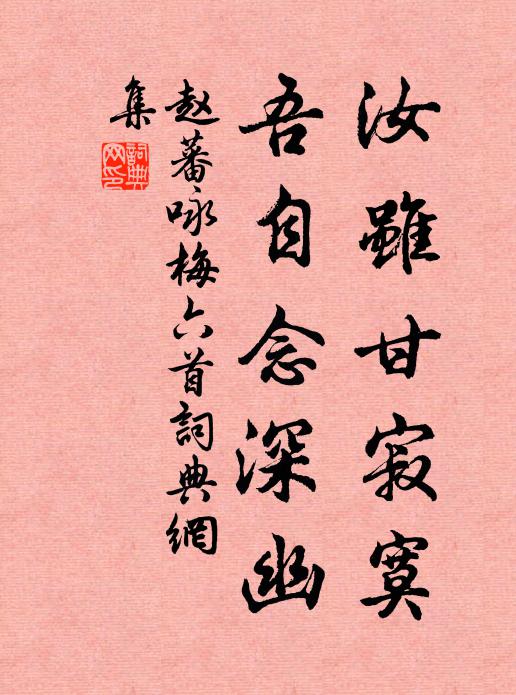 汝雖甘寂寞
吾自念深幽
趙蕃咏梅六首詞典網
集
詞典
网印